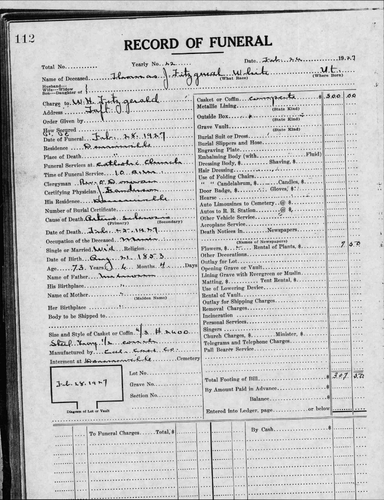 112
RECORD OF FUNERAL
Total No. Yearly No. 22 Date. Feb. 1927
Name of Deceased Thomas J. Fitzgerald White Vt.
(What Race) (Where Born)
Husband—
Wife—
Widow—
Son—Daughter of
Charge to W. H. Fitzgerald
Address Taft
Order Given by
How Secured
Date of Funeral Feb. 28, 1927
Residence
Place of Death
Funeral Services at Catholic Church
Time of Funeral Service 10 a.m.
Clergyman Rev.
Certifying Physician
His Residence
Number of Burial Certificate
Cause of Death
(Primary) (Secondary)
Date of Death Feb. 25, 1927
Occupation of the Deceased Miner
Single or Married Wid Religion
Date of Birth Aug. 21, 1853
Age 73 Years 6 Months 4 Days
Name of Father
His Birthplace
Name of Mother
(Maiden Name)
Her Birthplace
Body to be Shipped to
Size and Style of Casket or Coffin 6/3
Manufactured by
Interment at Cemetery
Feb. 28, 1927
Lot No.
Grave No.
Section No.
Diagram of Lot or Vault
Casket or Coffin complete $ 300 00
(State Kind)
Metallic Lining
Outside Box
(State Kind)
Grave Vault
(State Kind)
Burial Suit or Dress
Burial Slippers and Hose
Engraving Plate
Embalming Body (with Fluid)
Dressing Body, $ Shaving, $
Hair Dressing
Use of Folding Chairs
" " Candelabrum, $ Candles, $
Door Badge, $ Gloves, $
Hearse
Auto Limousines to Cemetery @ $
Autos to R. R. Station @ $
Other Vehicle Service
Aeroplane Service
Death Notices in Newspapers
(Names of Newspapers)
Flowers, $ Rental of Plants, $ 7 50
Other Decorations
Outlay for Lot
Opening Grave or Vault
Lining Grave with Evergreen or Muslin
Matting, $ Tent Rental, $
Use of Lowering Device
Rental of Vault
Outlay for Shipping Charges
Removal Charges
Incineration
Personal Services
Singers
Church Charges, $ Minister, $
Telegrams and Telephone Charges
Pall Bearer Service
Total Footing of Bill $ 307 50
By Amount Paid in Advance
Balance
Entered into Ledger, page or below
To Funeral Charges Total, $ By Cash $